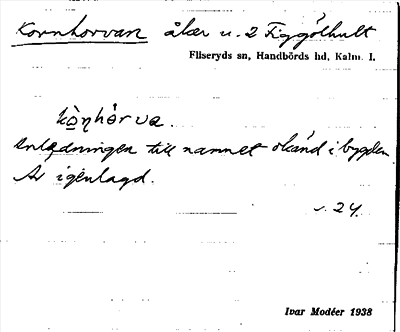 Kornhorvan åker u. 2 Figgölhult
Fliseryds sn, Handbörds hd, Kalm. l.
kò̱ŋhór va.
Anledningen till namnet okänd i bygden.
Är igenlagd.
s. 24.
Ivar Modéer 1938